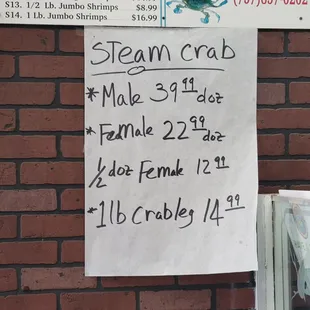 S13. 1/2 Lb. Jumbo Shrimps $8.99
S14. 1 Lb. Jumbo Shrimps $16.99
STeam crab
*Male 39 99 doz
*Female 22 99 doz
1/2 doz Female 12 99
*1lb Crableg 14 99